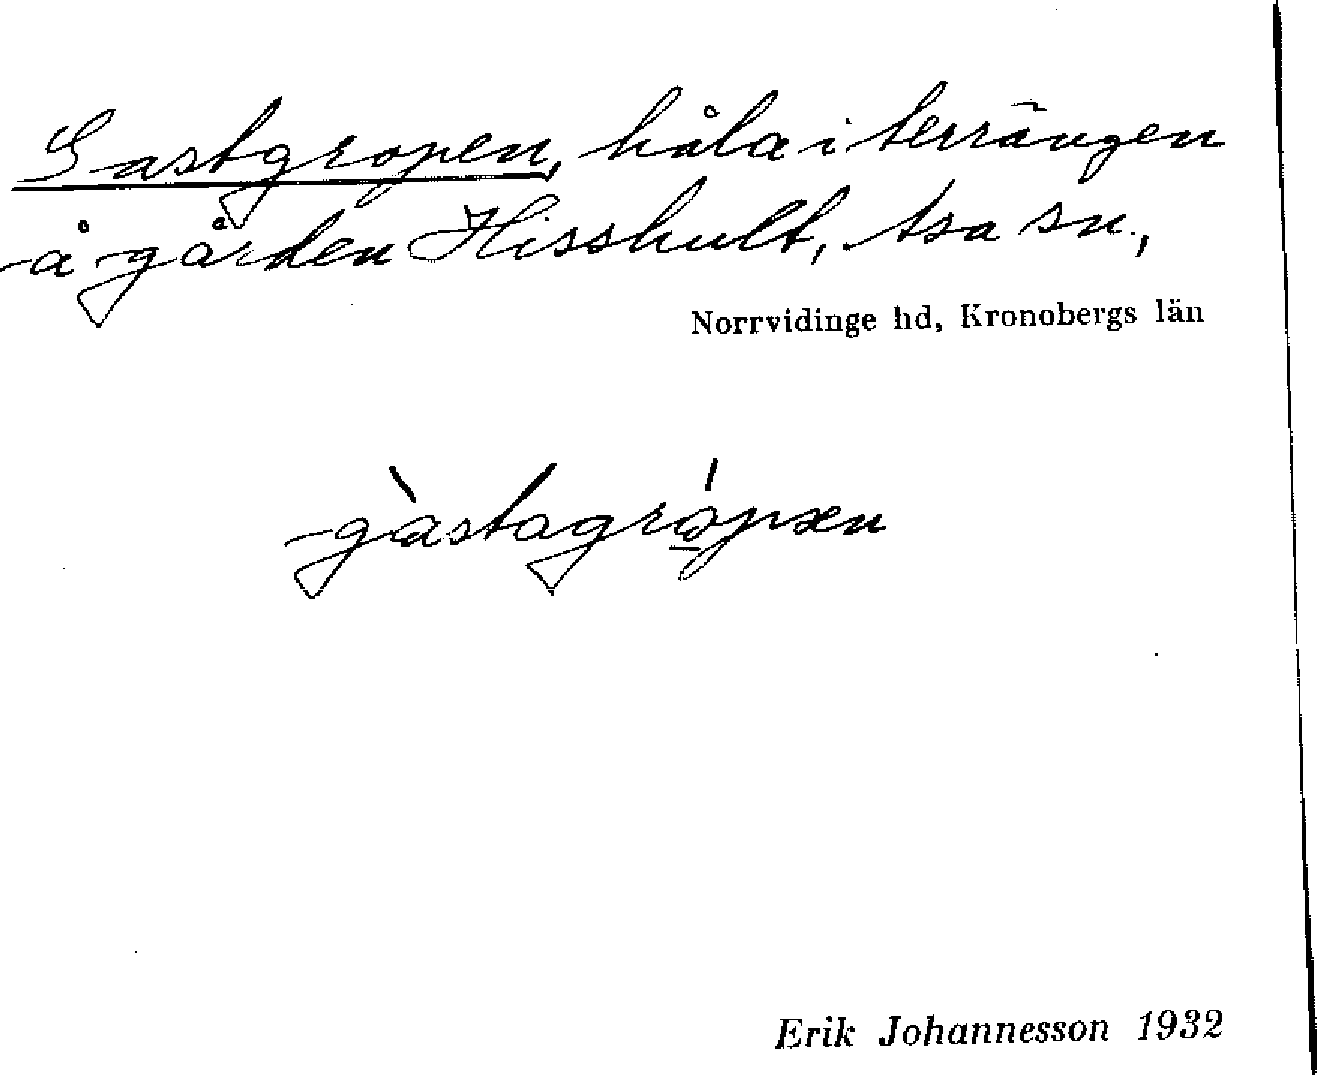 Gastgropen, håla i terrängen
å gården Hisshult, Asa sn.,
Norrvidinge hd, Kronobergs län
gàstagrópæn
Erik Johannesson 1932